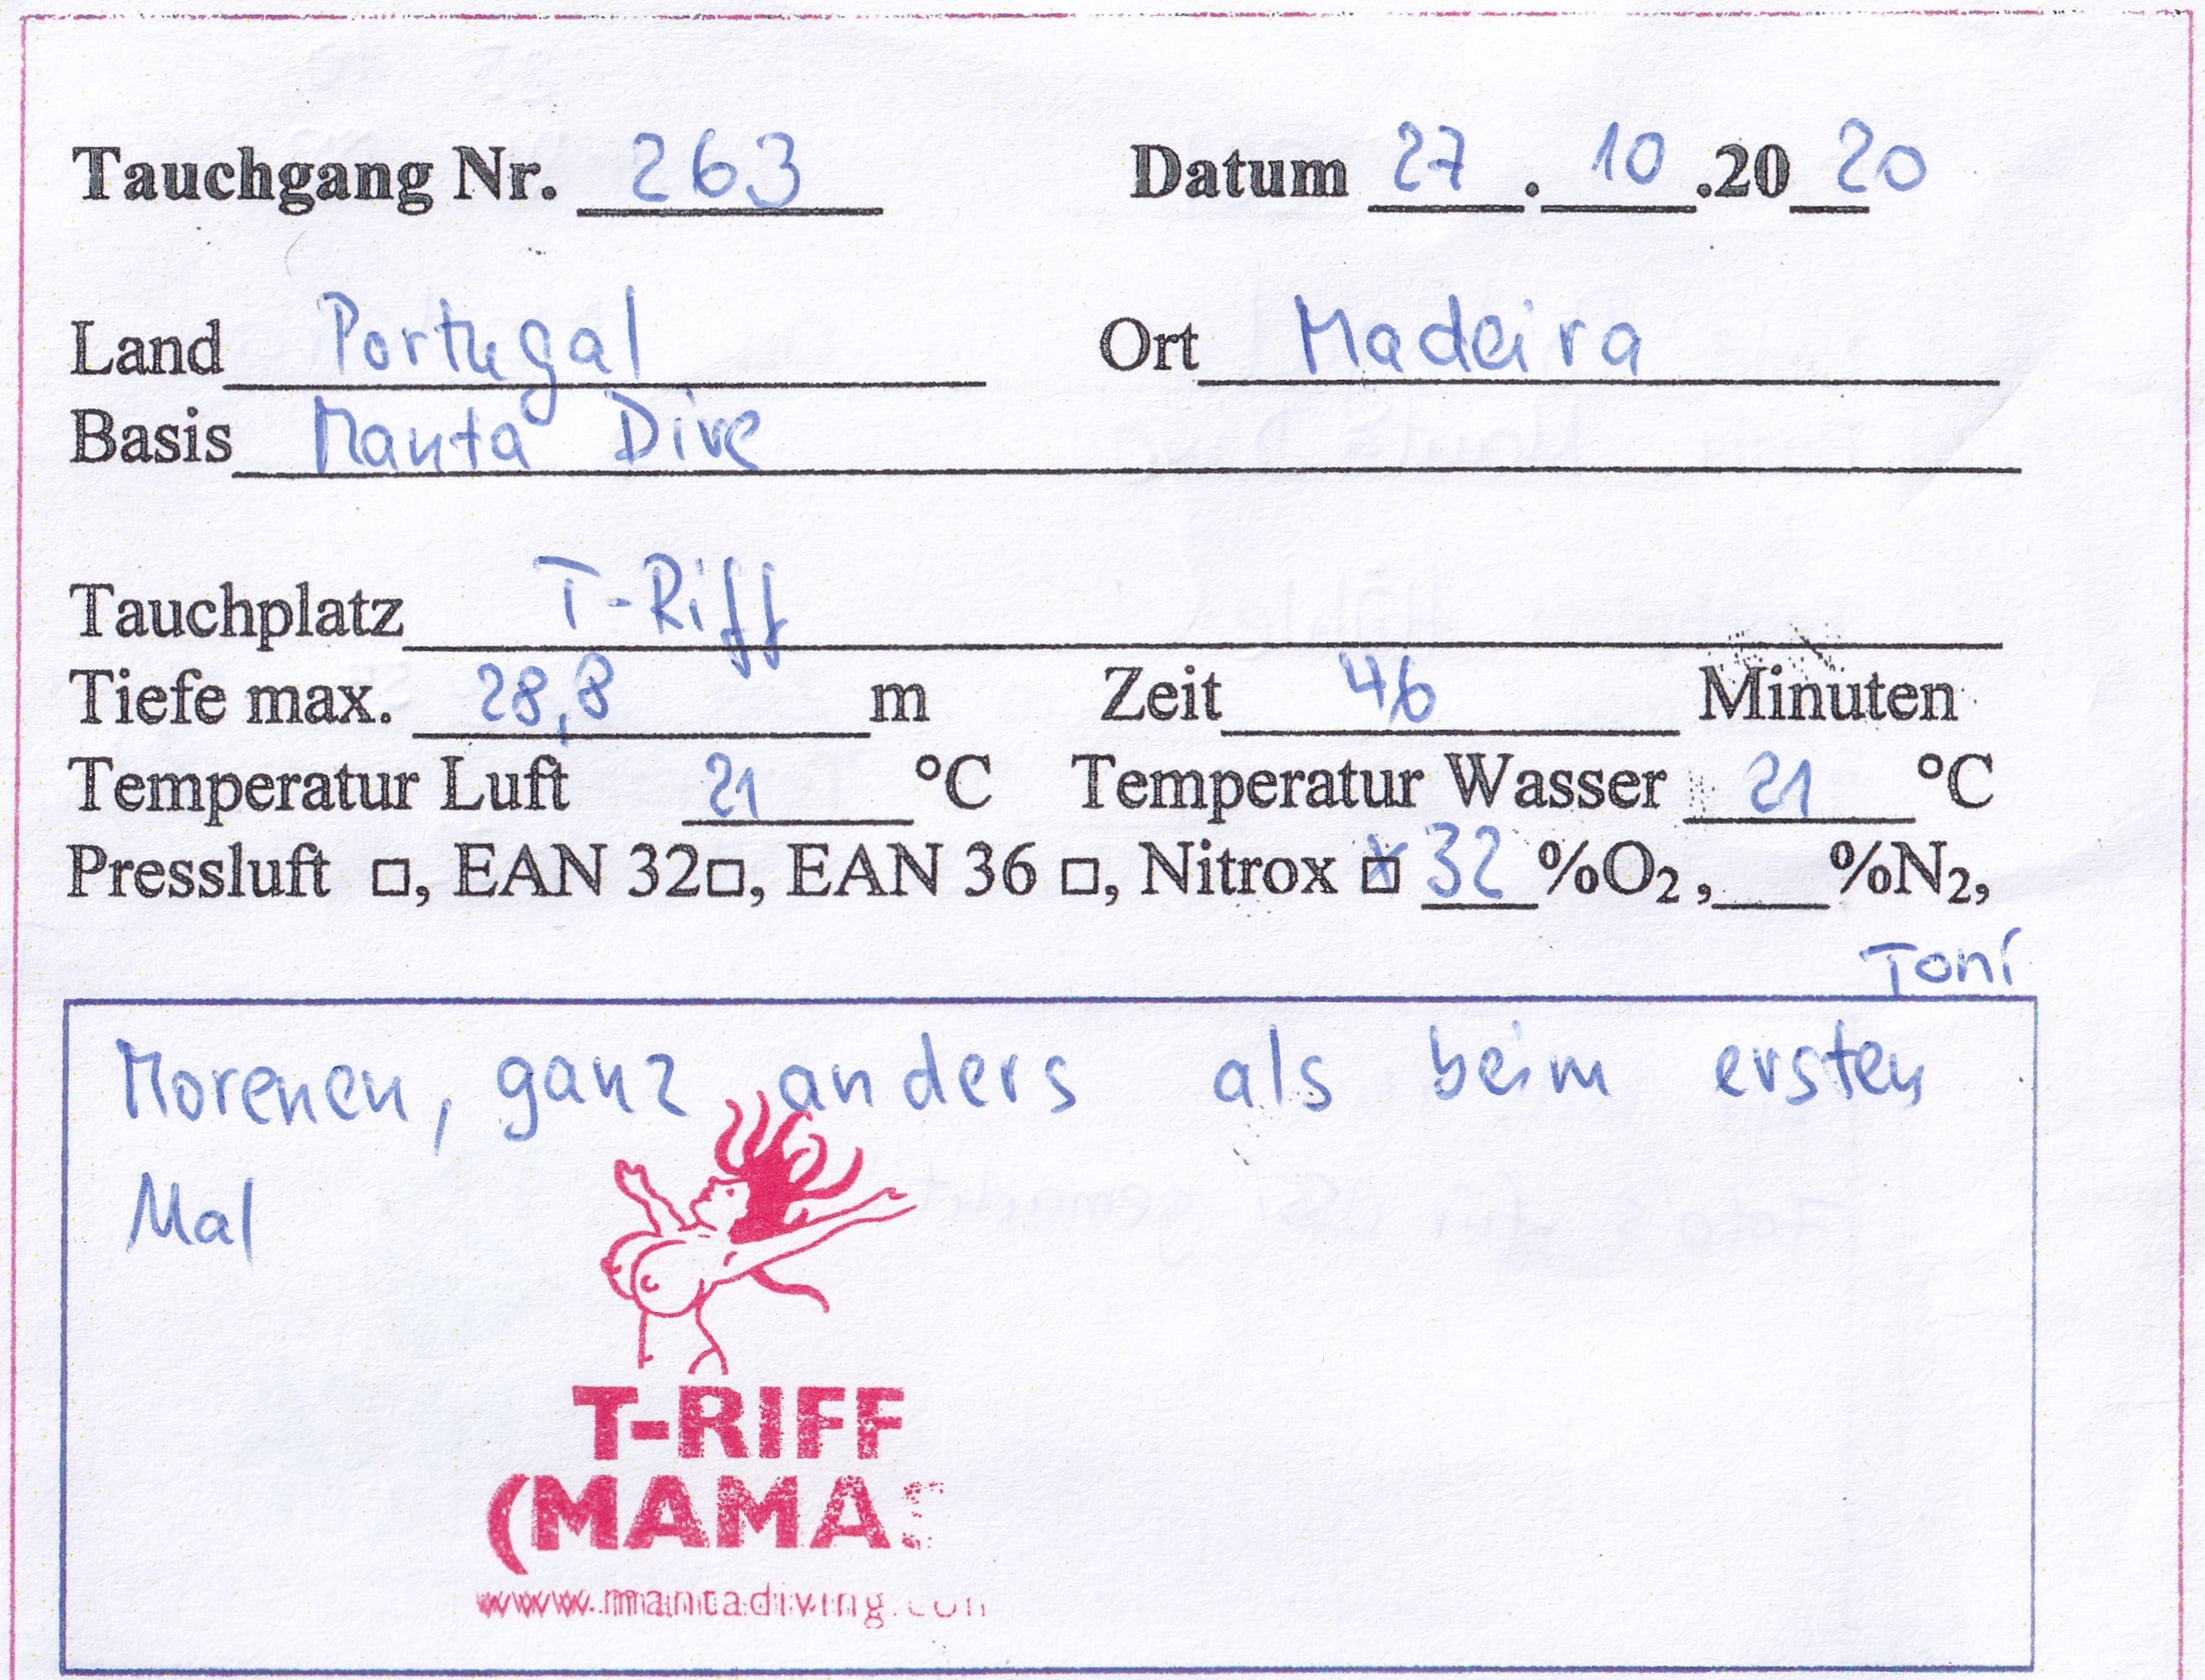 Tauchgang Nr. 263 Datum 27.10.2020
Land Portugal Ort Madeira
Basis Manta Dive
Tauchplatz T-Riff
Tiefe max. 28,8 m Zeit 46 Minuten
Temperatur Luft 21 °C Temperatur Wasser 21 °C
Pressluft □, EAN 32□, EAN 36 □, Nitrox ☒ 32 %O₂, ___%N₂,
Toni
Morenen, ganz anders als beim ersten
Mal
T-RIFF
(MAMAS
www.mantadiving.com